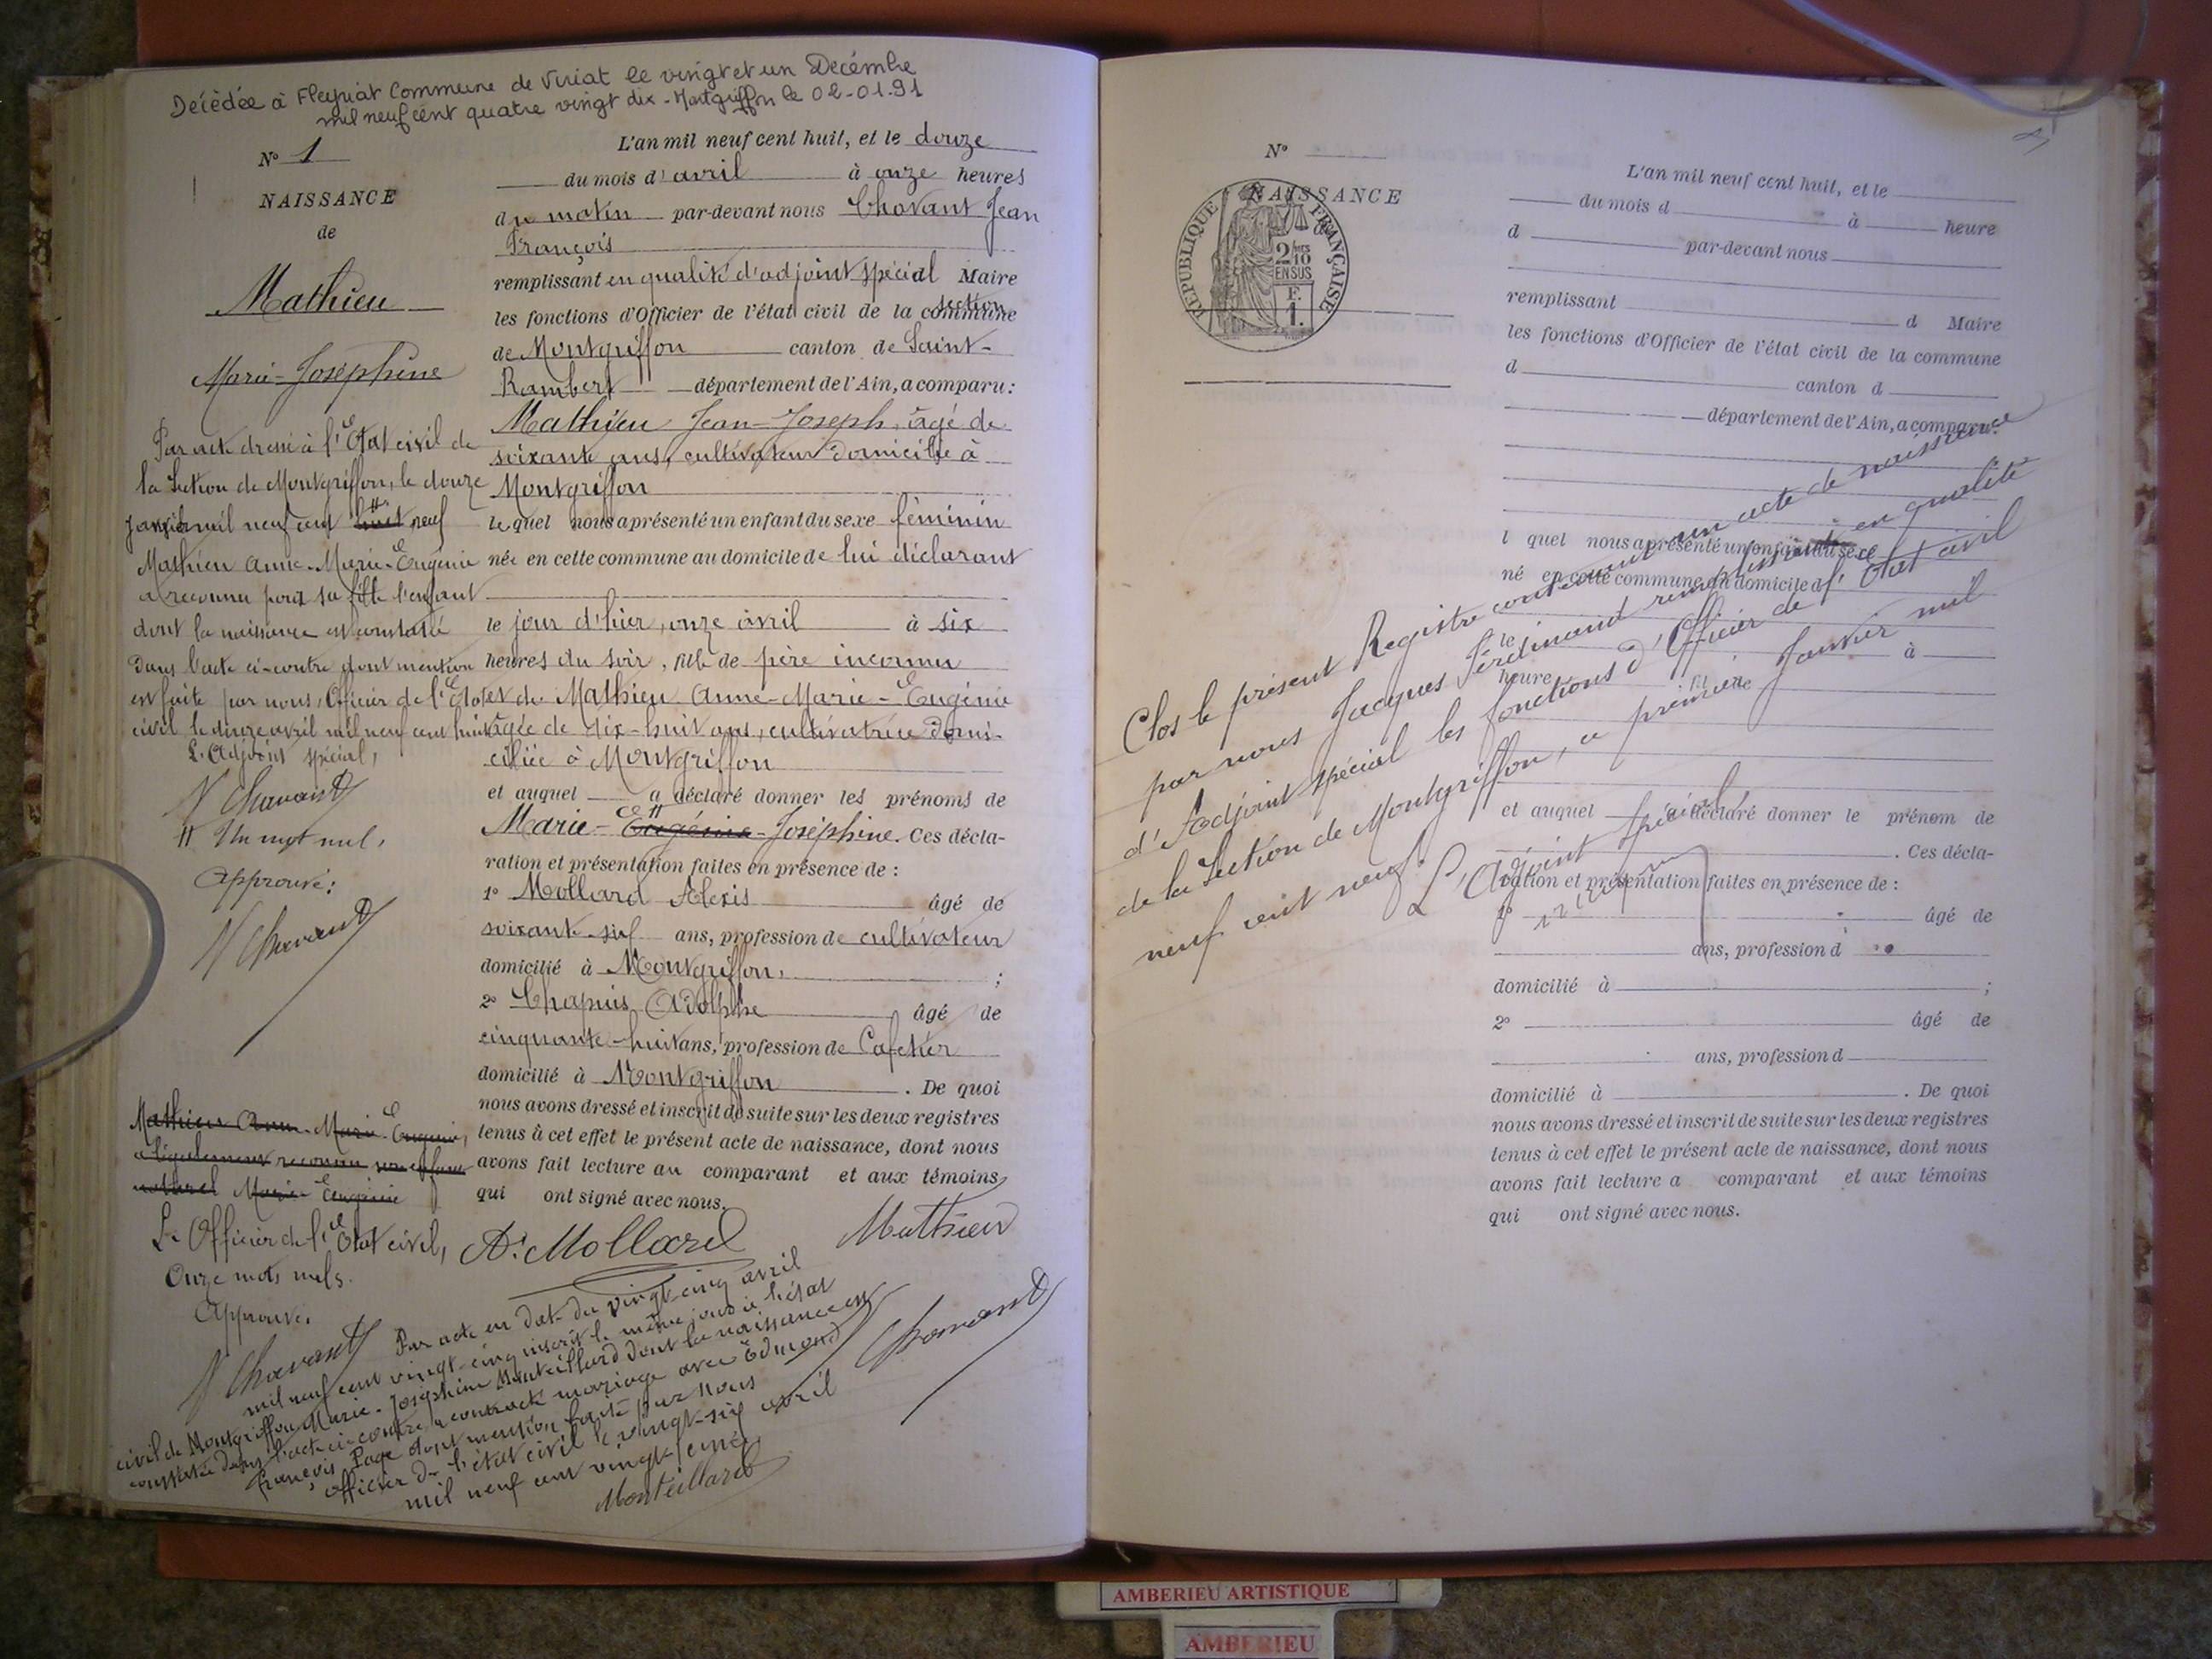 Décédée à Fleyriat Commune de Viriat le vingt et un Décembre
mil neuf cent quatre vingt dix - Montgriffon le 02-01-91
N° 1
NAISSANCE
de
Mathieu
Marie-Joséphine
Par acte dressé à l'Etat civil de
la Section de Montgriffon, le douze
janvier mil neuf cent huit neuf
Mathieu Anne-Marie-Eugénie
a reconnu pour sa fille l'enfant
dont la naissance est constatée
dans l'acte ci-contre dont mention
est faite par nous, Officier de l'Etat
civil le douze avril mil neuf cent huit
L'Adjoint spécial,
Chavant
H Un mot nul,
Approuvé:
Chavant
Mathieu Anne-Marie-Eugénie,
a légalement reconnu son enfant
naturel Marie-Eugénie
L'Officier de l'Etat civil,
Onze mots nuls.
Approuvé.
Chavant
L'an mil neuf cent huit, et le douze
du mois d'avril à onze heures
du matin par-devant nous Chavant Jean
François
remplissant en qualité d'adjoint spécial Maire
section
les fonctions d'Officier de l'état civil de la commune
de Montgriffon canton de Saint-
Rambert département de l'Ain, a comparu:
Mathieu Jean-Joseph, âgé de
soixante ans, cultivateur domicilié à
Montgriffon
lequel nous a présenté un enfant du sexe féminin
née en cette commune au domicile de lui déclarant
le jour d'hier, onze avril à six
heures du soir, fille de père inconnu
et de Mathieu Anne-Marie-Eugénie
âgée de dix-huit ans, cultivatrice domi-
ciliée à Montgriffon
et auquel a déclaré donner les prénoms de
Marie-Eugénie-Joséphine. Ces décla-
ration et présentation faites en présence de :
1° Mollard Alexis âgé de
soixante-six ans, profession de cultivateur
domicilié à Montgriffon ;
2° Chapuis Adolphe âgé de
cinquante-huit ans, profession de Cafetier
domicilié à Montgriffon . De quoi
nous avons dressé et inscrit de suite sur les deux registres
tenus à cet effet le présent acte de naissance, dont nous
avons fait lecture au comparant et aux témoins
qui ont signé avec nous.
A. Mollard Mathieu
Chavant
Par acte en date du vingt-cinq avril
mil neuf cent vingt-cinq inscrit le même jour à l'état
civil de Montgriffon Marie-Joséphine Monteillard dont la naissance est
constatée dans l'acte ci-contre a contracté mariage avec Edmond
François Page dont mention faite par nous
officier de l'état civil le vingt-six avril
mil neuf cent vingt-cinq
Monteillard
N°
NAISSANCE
de
REPUBLIQUE FRANÇAISE
2/10
EN SUS
F.
1.
L'an mil neuf cent huit, et le
du mois d à heure
d par-devant nous
remplissant d Maire
les fonctions d'Officier de l'état civil de la commune
d canton d
département de l'Ain, a comparu:
l quel nous a présenté un enfant du sexe
né en cette commune au domicile d
le à
heure fil de
et auquel déclaré donner le prénom de
. Ces décla-
ration et présentation faites en présence de :
1° âgé de
ans, profession d
domicilié à ;
2° âgé de
ans, profession d
domicilié à . De quoi
nous avons dressé et inscrit de suite sur les deux registres
tenus à cet effet le présent acte de naissance, dont nous
avons fait lecture a comparant et aux témoins
qui ont signé avec nous.
Clos le présent Registre contenant un acte de naissance
par nous Jacques Ferdinand remplissant en qualité
d'Adjoint spécial les fonctions d'Officier de l'Etat civil
de la Section de Montgriffon, ce premier Janvier mil
neuf cent neuf.
L'Adjoint spécial,
AMBERIEU ARTISTIQUE
AMBERIEU